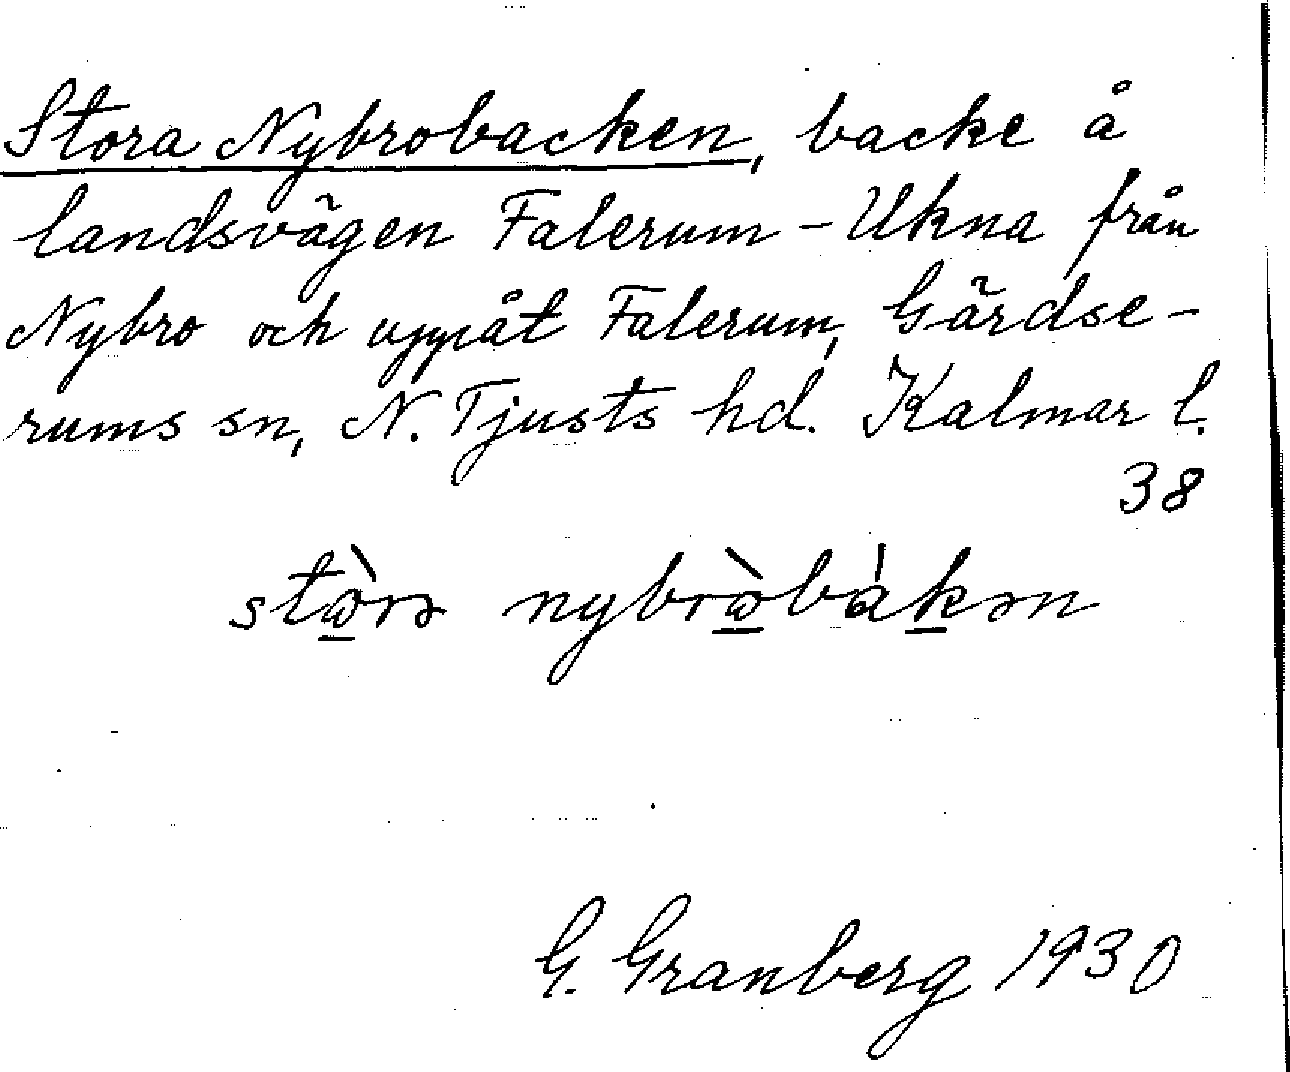 Stora Nybrobacken, backe å
landsvägen Falerum - Ukna från
Nybro och uppåt Falerum, Gärdse-
rums sn, N. Tjusts hd. Kalmar l.
38
stὼ̲rə nybrὼ̲bák̲ən
G. Granberg 1930